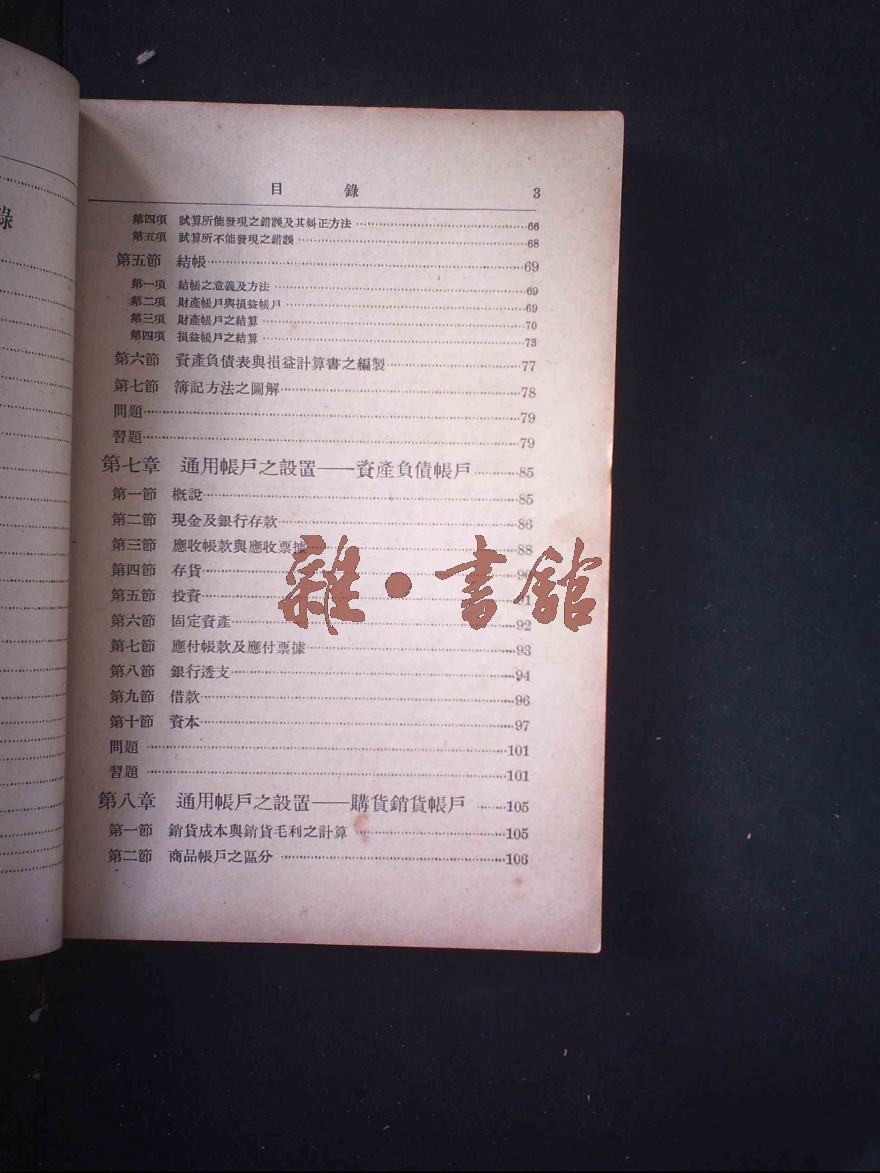 目錄 3
第四項 試算所能發現之錯誤及其糾正方法 66
第五項 試算所不能發現之錯誤 68
第五節 結帳 69
第一項 結帳之意義及方法 69
第二項 財產帳戶與損益帳戶 69
第三項 財產帳戶之結算 70
第四項 損益帳戶之結算 73
第六節 資產負債表與損益計算書之編製 77
第七節 簿記方法之圖解 78
問題 79
習題 79
第七章 通用帳戶之設置——資產負債帳戶 85
第一節 概說 85
第二節 現金及銀行存款 86
第三節 應收帳款與應收票據 88
第四節 存貨 90
第五節 投資 91
第六節 固定資產 92
第七節 應付帳款及應付票據 93
第八節 銀行透支 94
第九節 借款 96
第十節 資本 97
問題 101
習題 101
第八章 通用帳戶之設置——購貨銷貨帳戶 105
第一節 銷貨成本與銷貨毛利之計算 105
第二節 商品帳戶之區分 106
雜·書館
錄